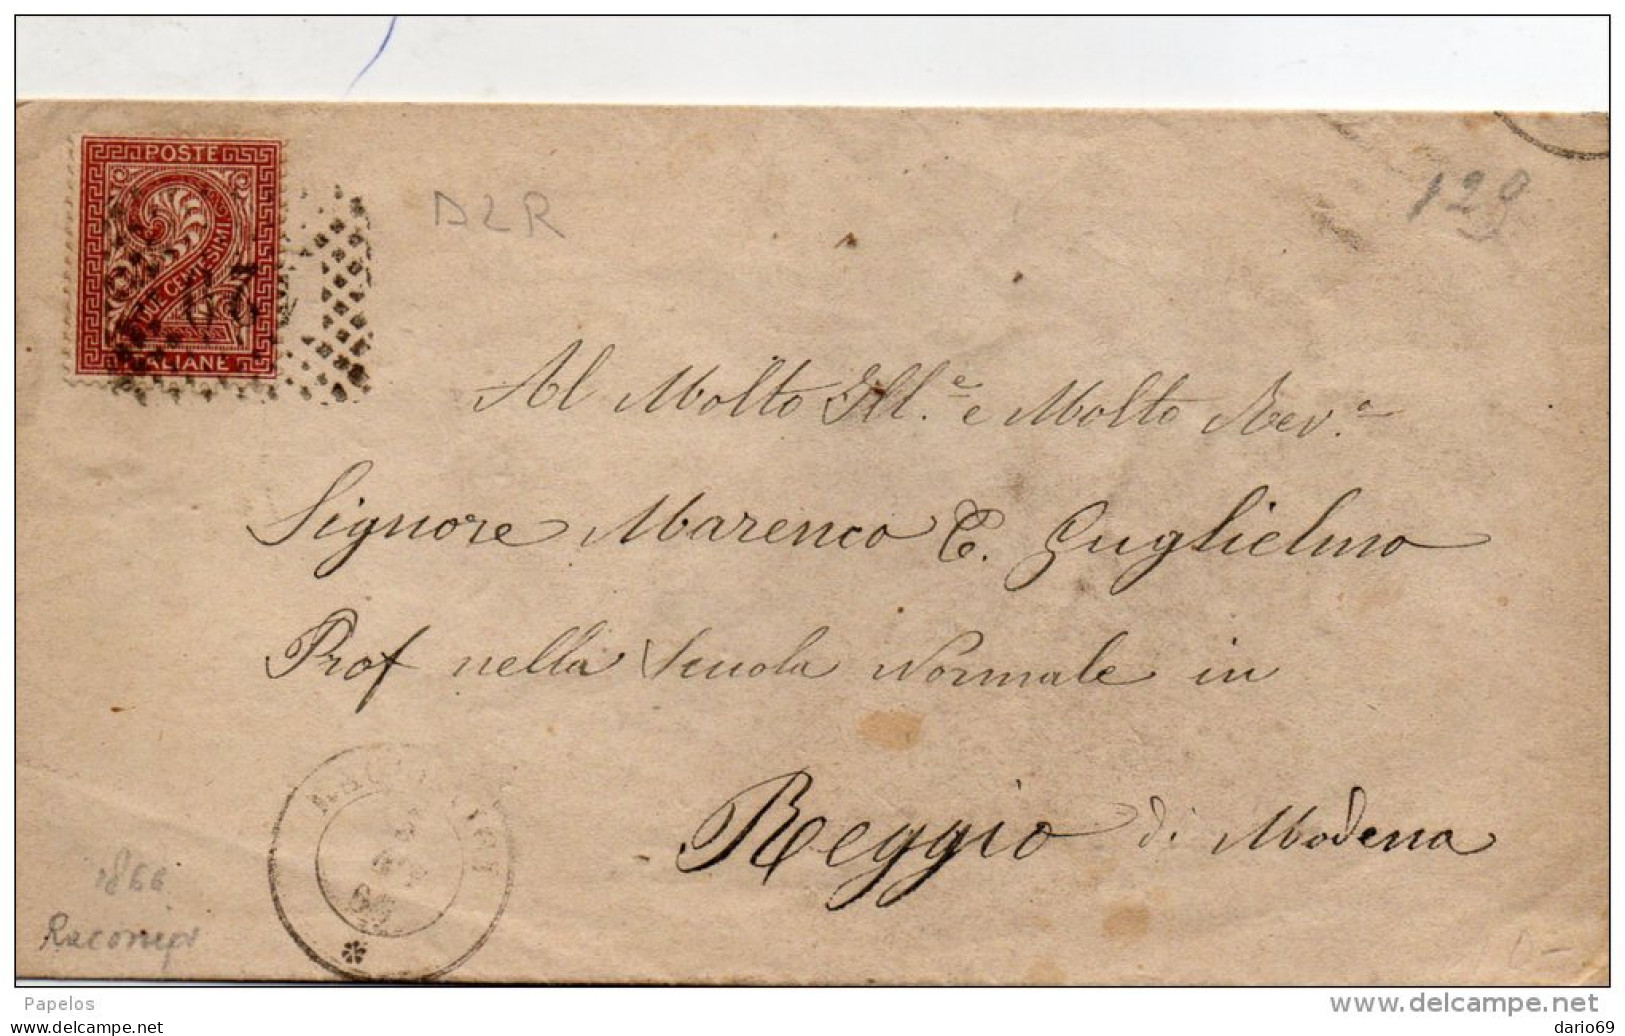 POSTE
DUE CENTESIMI
ALIANE
D2R
129
Al Molto Ill.e e Molto Rev.o
Signore Marenco C. Guglielmo
Prof nella Scuola Normale in
Reggio di Modena
1866
Racconigi
Papelos
www.delcampe.net
dario69